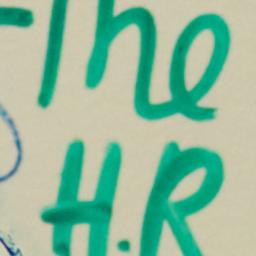 The
H.R